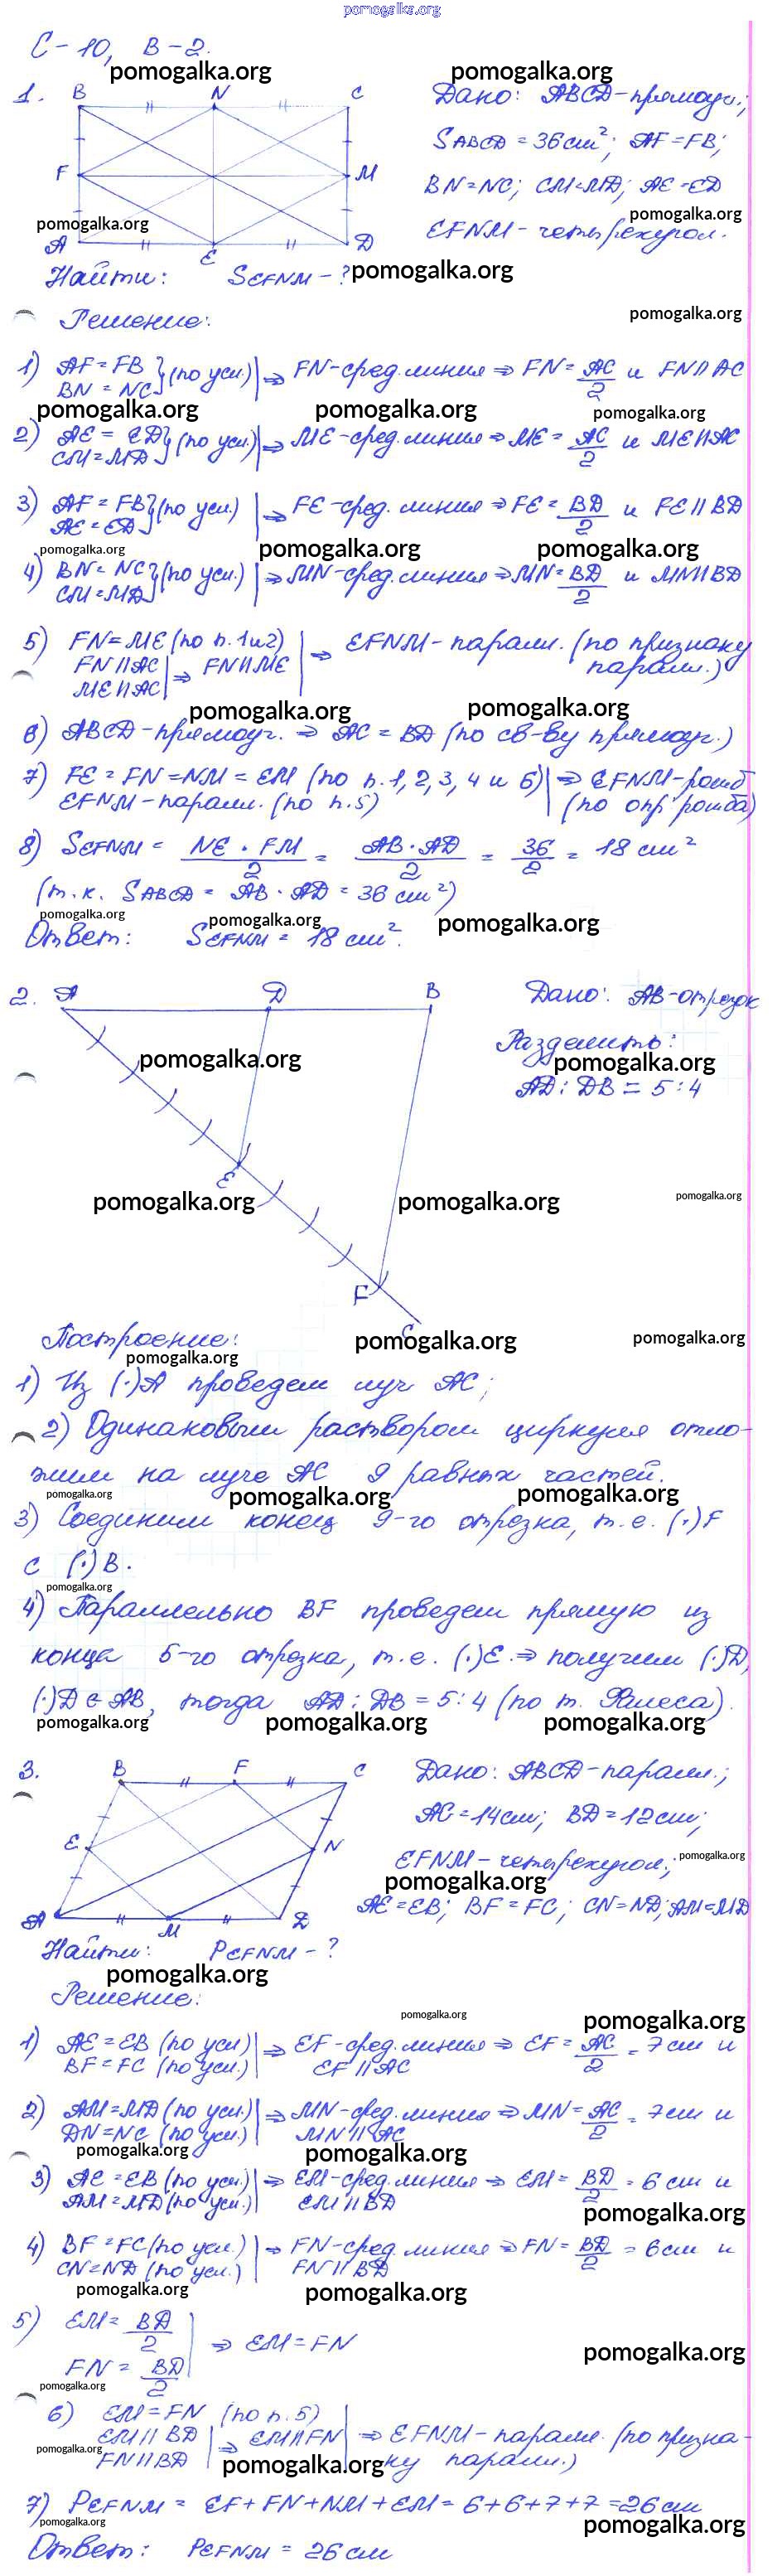 pomogalka.org
С-10, В-2.
pomogalka.org pomogalka.org
1. B N C
F M
A E D
Дано: ABCD-прямоуг.;
SABCD = 36 см²; AF=FB;
BN=NC; CM=MD; AE=ED
pomogalka.org pomogalka.org
EFNM - четырехугол.
Найти: SEFNM - ? pomogalka.org
pomogalka.org
Решение:
1) AF=FB
BN=NC } (по усл.) | ⇒ FN-сред. линия ⇒ FN = AC/2 и FN||AC
pomogalka.org pomogalka.org pomogalka.org
2) AE = ED
CM=MD } (по усл.) | ⇒ ME-сред. линия ⇒ ME = AC/2 и ME||AC
3) AF=FB
AE=ED } (по усл.) | ⇒ FE-сред. линия ⇒ FE = BD/2 и FE||BD
pomogalka.org pomogalka.org pomogalka.org
4) BN=NC
CM=MD } (по усл.) | ⇒ MN-сред. линия ⇒ MN = BD/2 и MN||BD
5) FN=ME (по п. 1 и 2)
FN||AC
ME||AC | ⇒ FN||ME | ⇒ EFNM - паралл. (по признаку паралл.)
pomogalka.org pomogalka.org
6) ABCD-прямоуг. ⇒ AC = BD (по св-ву прямоуг.)
7) FE = FN = NM = EM (по п. 1, 2, 3, 4 и 6) | ⇒ EFNM-ромб
EFNM - паралл. (по п. 5) (по опр. ромба)
8) SEFNM = NE · FM/2 = AB · AD/2 = 36/2 = 18 см²
(т.к. SABCD = AB · AD = 36 см²)
pomogalka.org pomogalka.org pomogalka.org
Ответ: SEFNM = 18 см².
2. A D B
E
F
C
Дано: AB-отрезок
Разделить:
pomogalka.org pomogalka.org
AD : DB = 5 : 4
pomogalka.org pomogalka.org pomogalka.org
Построение:
pomogalka.org pomogalka.org
pomogalka.org
1) Из (·)A проведем луч AC;
2) Одинаковым раствором циркуля отло-
жим на луче AC 9 равных частей.
pomogalka.org pomogalka.org pomogalka.org
3) Соединим конец 9-го отрезка, т.е. (·)F
с (·)B.
pomogalka.org
4) Параллельно BF проведем прямую из
конца 5-го отрезка, т.е. (·)E ⇒ получим (·)D,
(·)D ∈ AB, тогда AD : DB = 5 : 4 (по т. Фалеса).
pomogalka.org pomogalka.org pomogalka.org
3. B F C
E N
A M D
Дано: ABCD-паралл.;
AC=14см; BD=12см;
EFNM-четырехугол.; pomogalka.org
pomogalka.org
AE=EB; BF=FC; CN=ND; AM=MD
Найти: PEFNM - ?
pomogalka.org
Решение:
pomogalka.org pomogalka.org
1) AE=EB (по усл.)
BF=FC (по усл.) | ⇒ EF-сред. линия ⇒ EF = AC/2 = 7 см и
EF||AC
2) AM=MD (по усл.)
DN=NC (по усл.) | ⇒ MN-сред. линия ⇒ MN = AC/2 = 7см и
MN||AC
pomogalka.org pomogalka.org
3) AE=EB (по усл.)
AM=MD (по усл.) | ⇒ EM-сред. линия ⇒ EM = BD/2 = 6 см и
EM||BD
pomogalka.org
4) BF=FC (по усл.)
CN=ND (по усл.) | ⇒ FN-сред. линия ⇒ FN = BD/2 = 6см и
FN||BD
pomogalka.org pomogalka.org
5) EM = BD/2
FN = BD/2 | ⇒ EM=FN
pomogalka.org
pomogalka.org
6) EM=FN (по п. 5)
EM||BD
FN||BD | ⇒ EM||FN | ⇒ EFNM - паралл. (по призна-
ку паралл.)
pomogalka.org pomogalka.org
7) PEFNM = EF+FN+NM+EM = 6+6+7+7 = 26 см
pomogalka.org pomogalka.org
Ответ: PEFNM = 26 см